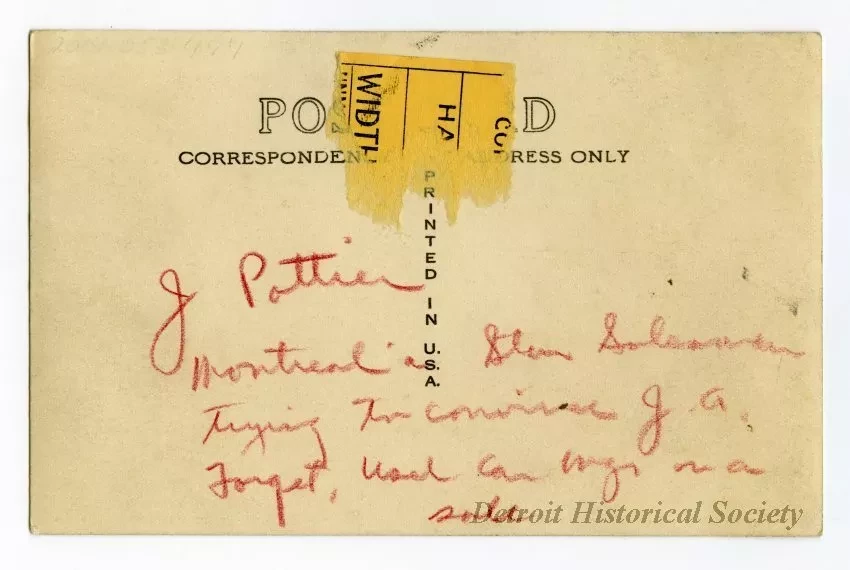 POS RD
CORRESPONDEN ADDRESS ONLY
WIDTH
HA
COI
PRINTED IN U.S.A.
J Pottier
Montreal's Star Salesman
trying to convince J A.
Forget, Used Car Mgr on a
sale
Detroit Historical Society